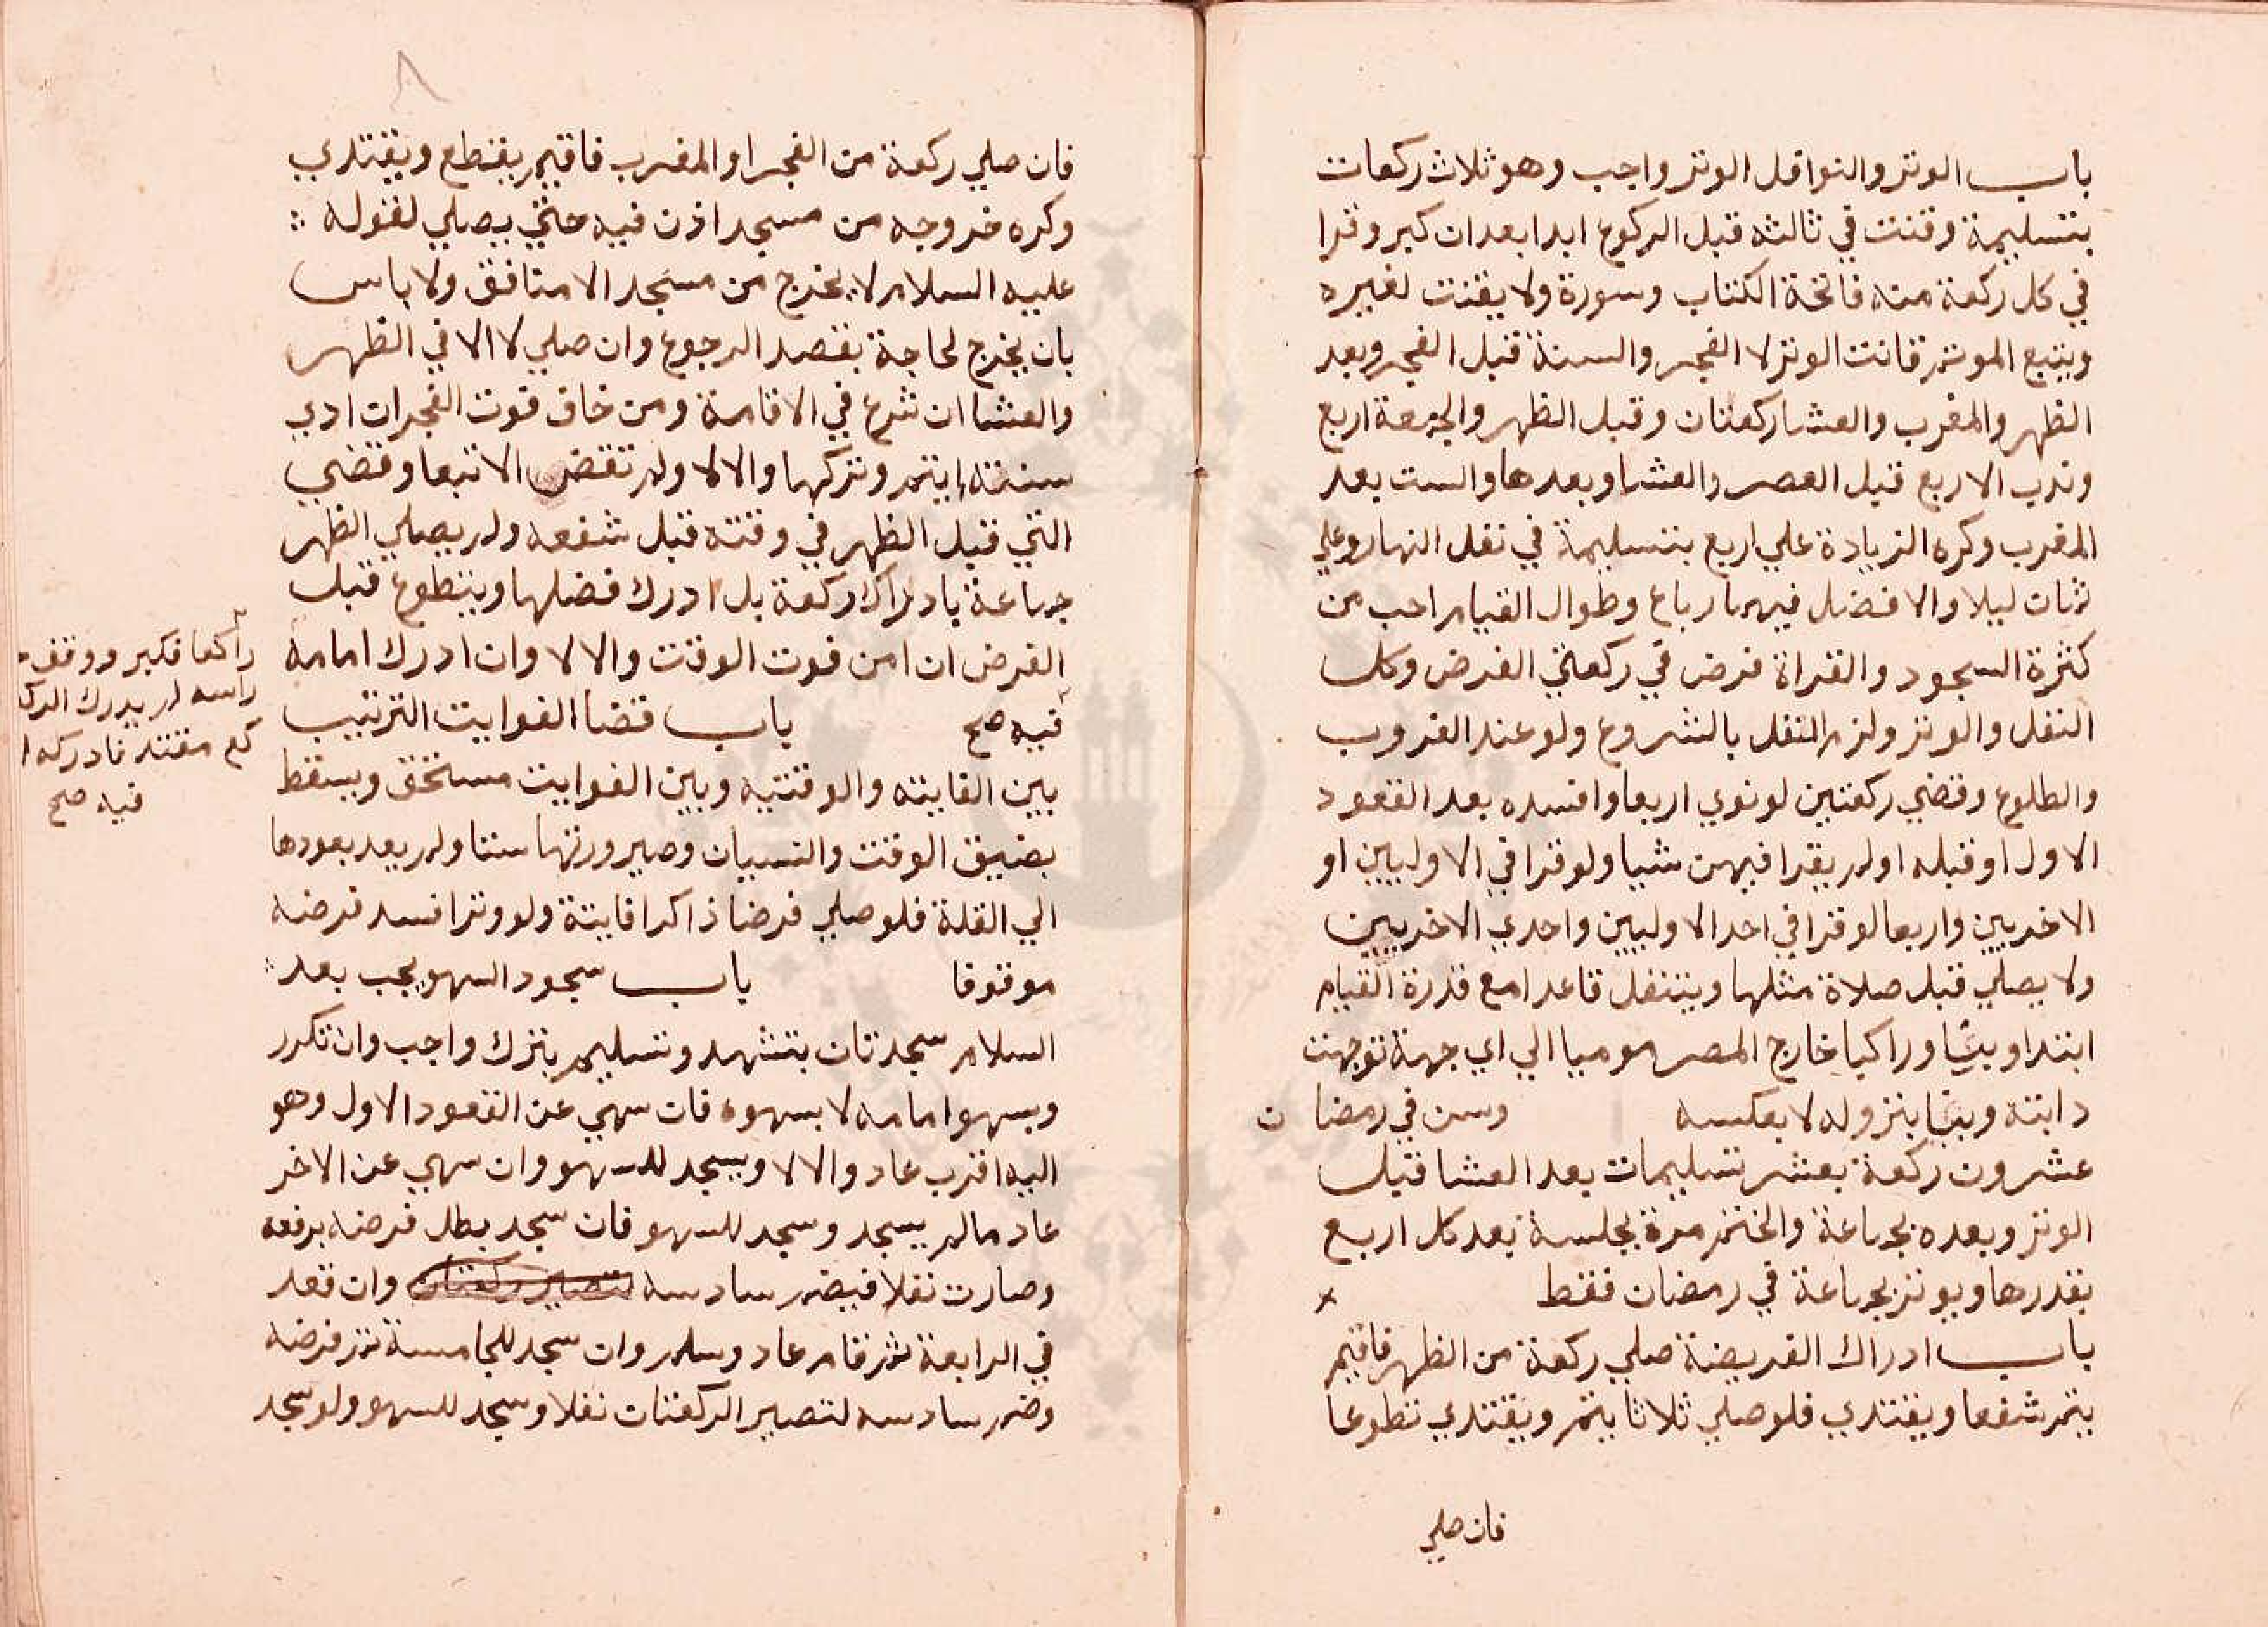 باب الوتر والنوافل الوتر واجب وهو ثلاث ركعات
بتسليمة وقنت في ثالثه قبل الركوع ابدا بعد ان كبر وقرا
في كل ركعة منه فاتحة الكتاب وسورة ولا يقنت لغيره
ويتبع الموتم قانت الوتر لا الفجر والسنة قبل الفجر وبعد
الظهر والمغرب والعشا ركعتان وقبل الظهر والجمعة اربع
وندب الاربع قبل العصر والعشا وبعدها والست بعد
المغرب وكره الزيادة علي اربع بتسليمة في نفل النهار وعلي
ثمان ليلا والافضل فيهما رباع وطوال القيام احب من
كثرة السجود والقراة فرض في ركعتي الفرض وكل
النفل والوتر ولزم النفل بالشروع ولو عند الغروب
والطلوع وقضي ركعتين لو نوي اربعا وافسده بعد القعود
الاول او قبله او لم يقرا فيهن شيا ولو قرا في الاوليين او
الاخريين واربعا لو قرا في احد الاوليين واحدي الاخريين
ولا يصلي قبل صلاة مثلها ويتنفل قاعدا مع قدرة القيام
ابتدا وبنا وراكبا خارج المصر موميا الي اي جهة توجهت
دابته وبنا بنزوله لا بعكسه وسن في رمضان
عشرون ركعة بعشر تسليمات بعد العشا قبل
الوتر وبعده بجماعة والختم مرة بجلسة بعد كل اربع
بقدرها ويوتر بجماعة في رمضان فقط
باب ادراك الفريضة صلي ركعة من الظهر فاقيم
يتم شفعا ويقتدي فلو صلي ثلاثا يتم ويقتدي تطوعا
فان صلي
٨
فان صلي ركعة من الفجر او المغرب فاقيم يقطع ويقتدي
وكره خروجه من مسجد اذن فيه حتي يصلي لقوله
عليه السلام لا يخرج من مسجد الا منافق ولا باس
بان يخرج لحاجة بقصد الرجوع وان صلي لا الا في الظهر
والعشا ان شرع في الاقامة ومن خاف فوت الفجر ان ادي
سنته ايتم وتركها والا لا ولم تقض الا تبعا وقضي
التي قبل الظهر في وقته قبل شفعه ولم يصلي الظهر
جماعة بادراك ركعة بل ادرك فضلها ويتطوع قبل
الفرض ان امن فوت الوقت والا لا وان ادرك امامه
فيه صح باب قضا الفوايت الترتيب
بين الفايته والوقتيه وبين الفوايت مستحق ويسقط
بضيق الوقت والنسيان وصيرورتها ستا ولم يعد بعودها
الي القلة فلو صلي فرضا ذاكرا فايتة ولو وترا فسد فرضه
موقوفا باب سجود السهو يجب بعد
السلام سجدتان بتشهد وتسليم بترك واجب وان تكرر
وبسهو امامه لا بسهوه فان سهي عن القعود الاول وهو
اليه اقرب عاد والا لا ويسجد للسهو وان سهي عن الاخر
عاد مالم يسجد وسجد للسهو فان سجد بطل فرضه برفعه
وصارت نفلا فيضم سادسه لتصير ركعتان وان قعد
في الرابعة ثم قام عاد وسلم وان سجد للخامسة تم فرضه
وضم سادسه لتصير الركعتان نفلا وسجد للسهو ولو سجد
راكعا فكبر ووقف
راسه لم يدرك الركـ
كع مقتد فادركه ا
فيه صح